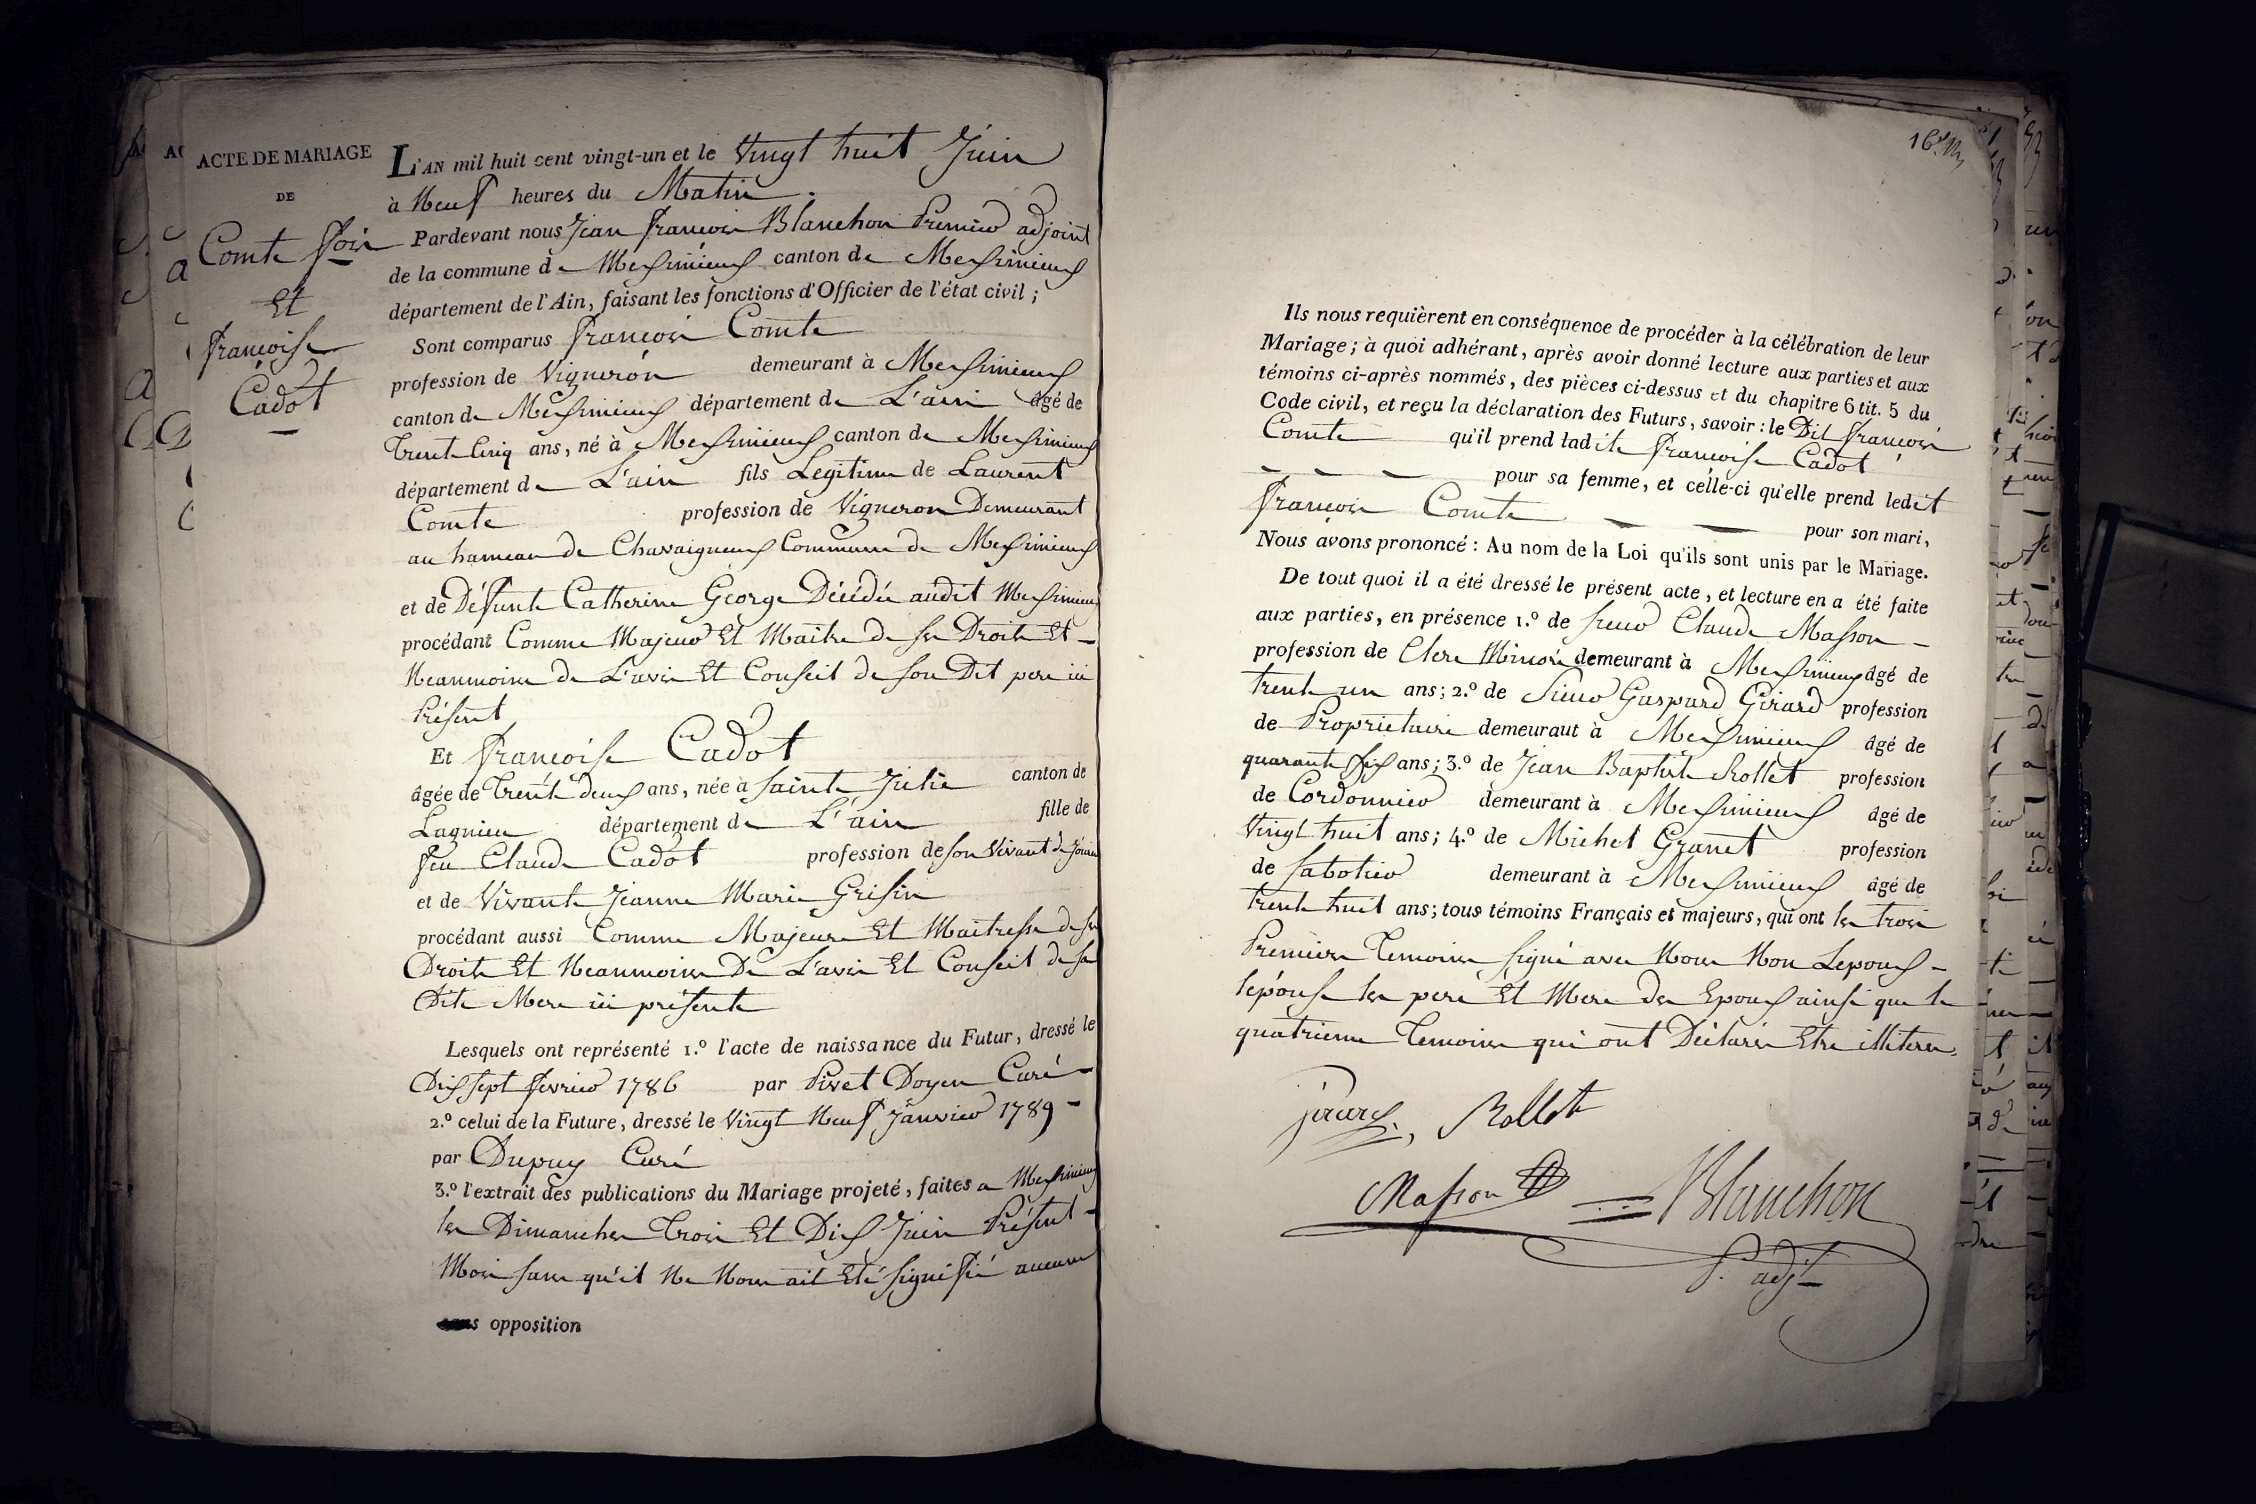 ACTE DE MARIAGE
DE
Comte fois
Et
françoise
Cadot
L'AN mil huit cent vingt-un et le Vingt huit Juin
à Neuf heures du Matin.
Pardevant nous Jean françois Blanchon Premier adjoint
de la commune de Meximieux canton de Meximieux
département de l'Ain, faisant les fonctions d'Officier de l'état civil ;
Sont comparus françois Comte
profession de Vigneron demeurant à Meximieux
canton de Meximieux département de L'ain âgé de
Trente Cinq ans, né à Meximieux canton de Meximieux
département de L'ain fils Legitime de Laurent
Comte profession de Vigneron Demeurant
au hameau de Chavaigneux Commune de Meximieux
et de Défunte Catherine George Décédée audit Meximieux
procédant Comme Majeur Et Maitre de ses Droits Et
Neanmoins de L'avis Et Conseil de son Dit pere ici
Présent
Et françoise Cadot
âgée de Trente deux ans, née à sainte Julie canton de
Lagnieu département de L'ain fille de
feu Claude Cadot profession de son Vivant de
et de Vivante Jeanne Marie Grisin
procédant aussi Comme Majeure Et Maitresse de ses
Droits Et Neanmoins De L'avis Et Conseil de sa
Dite Mere ici présente
Lesquels ont représenté 1.º l'acte de naissance du Futur, dressé le
Dix sept fevrier 1786 par Pivet Doyen Curé
2.º celui de la Future, dressé le Vingt Neuf Janvier 1789
par Dupuy Curé
3.º l'extrait des publications du Mariage projeté, faites a Meximieux
les Dimanches Trois Et Dix Juin Présent
Mois sans qu'il Ne Nous ait Eté signifié aucune
opposition
16
Ils nous requièrent en conséquence de procéder à la célébration de leur
Mariage ; à quoi adhérant, après avoir donné lecture aux parties et aux
témoins ci-après nommés, des pièces ci-dessus et du chapitre 6 tit. 5 du
Code civil, et reçu la déclaration des Futurs, savoir : le Dit françois
Comte qu'il prend ladite françoise Cadot
pour sa femme, et celle-ci qu'elle prend ledit
françois Comte pour son mari,
Nous avons prononcé : Au nom de la Loi qu'ils sont unis par le Mariage.
De tout quoi il a été dressé le présent acte, et lecture en a été faite
aux parties, en présence 1.º de sieur Claude Masson
profession de Clerc Minoré demeurant à Meximieux âgé de
trente un ans ; 2.º de Sieur Gaspard Girard profession
de Proprietaire demeuraut à Meximieux âgé de
quarante six ans ; 3.º de Jean Baptiste Rollet profession
de Cordonnier demeurant à Meximieux âgé de
Vingt huit ans ; 4.º de Michel Granet profession
de sabotier demeurant à Meximieux âgé de
trente huit ans ; tous témoins Français et majeurs, qui ont les trois
Premiers Temoins signé avec Nous Non Lepoux
lépouse les pere Et Mere des Epoux ainsi que le
quatrieme Temoins qui ont Déclarés Etre illiterés.
girard, Rollet
Masson Blanchon
P. adjt